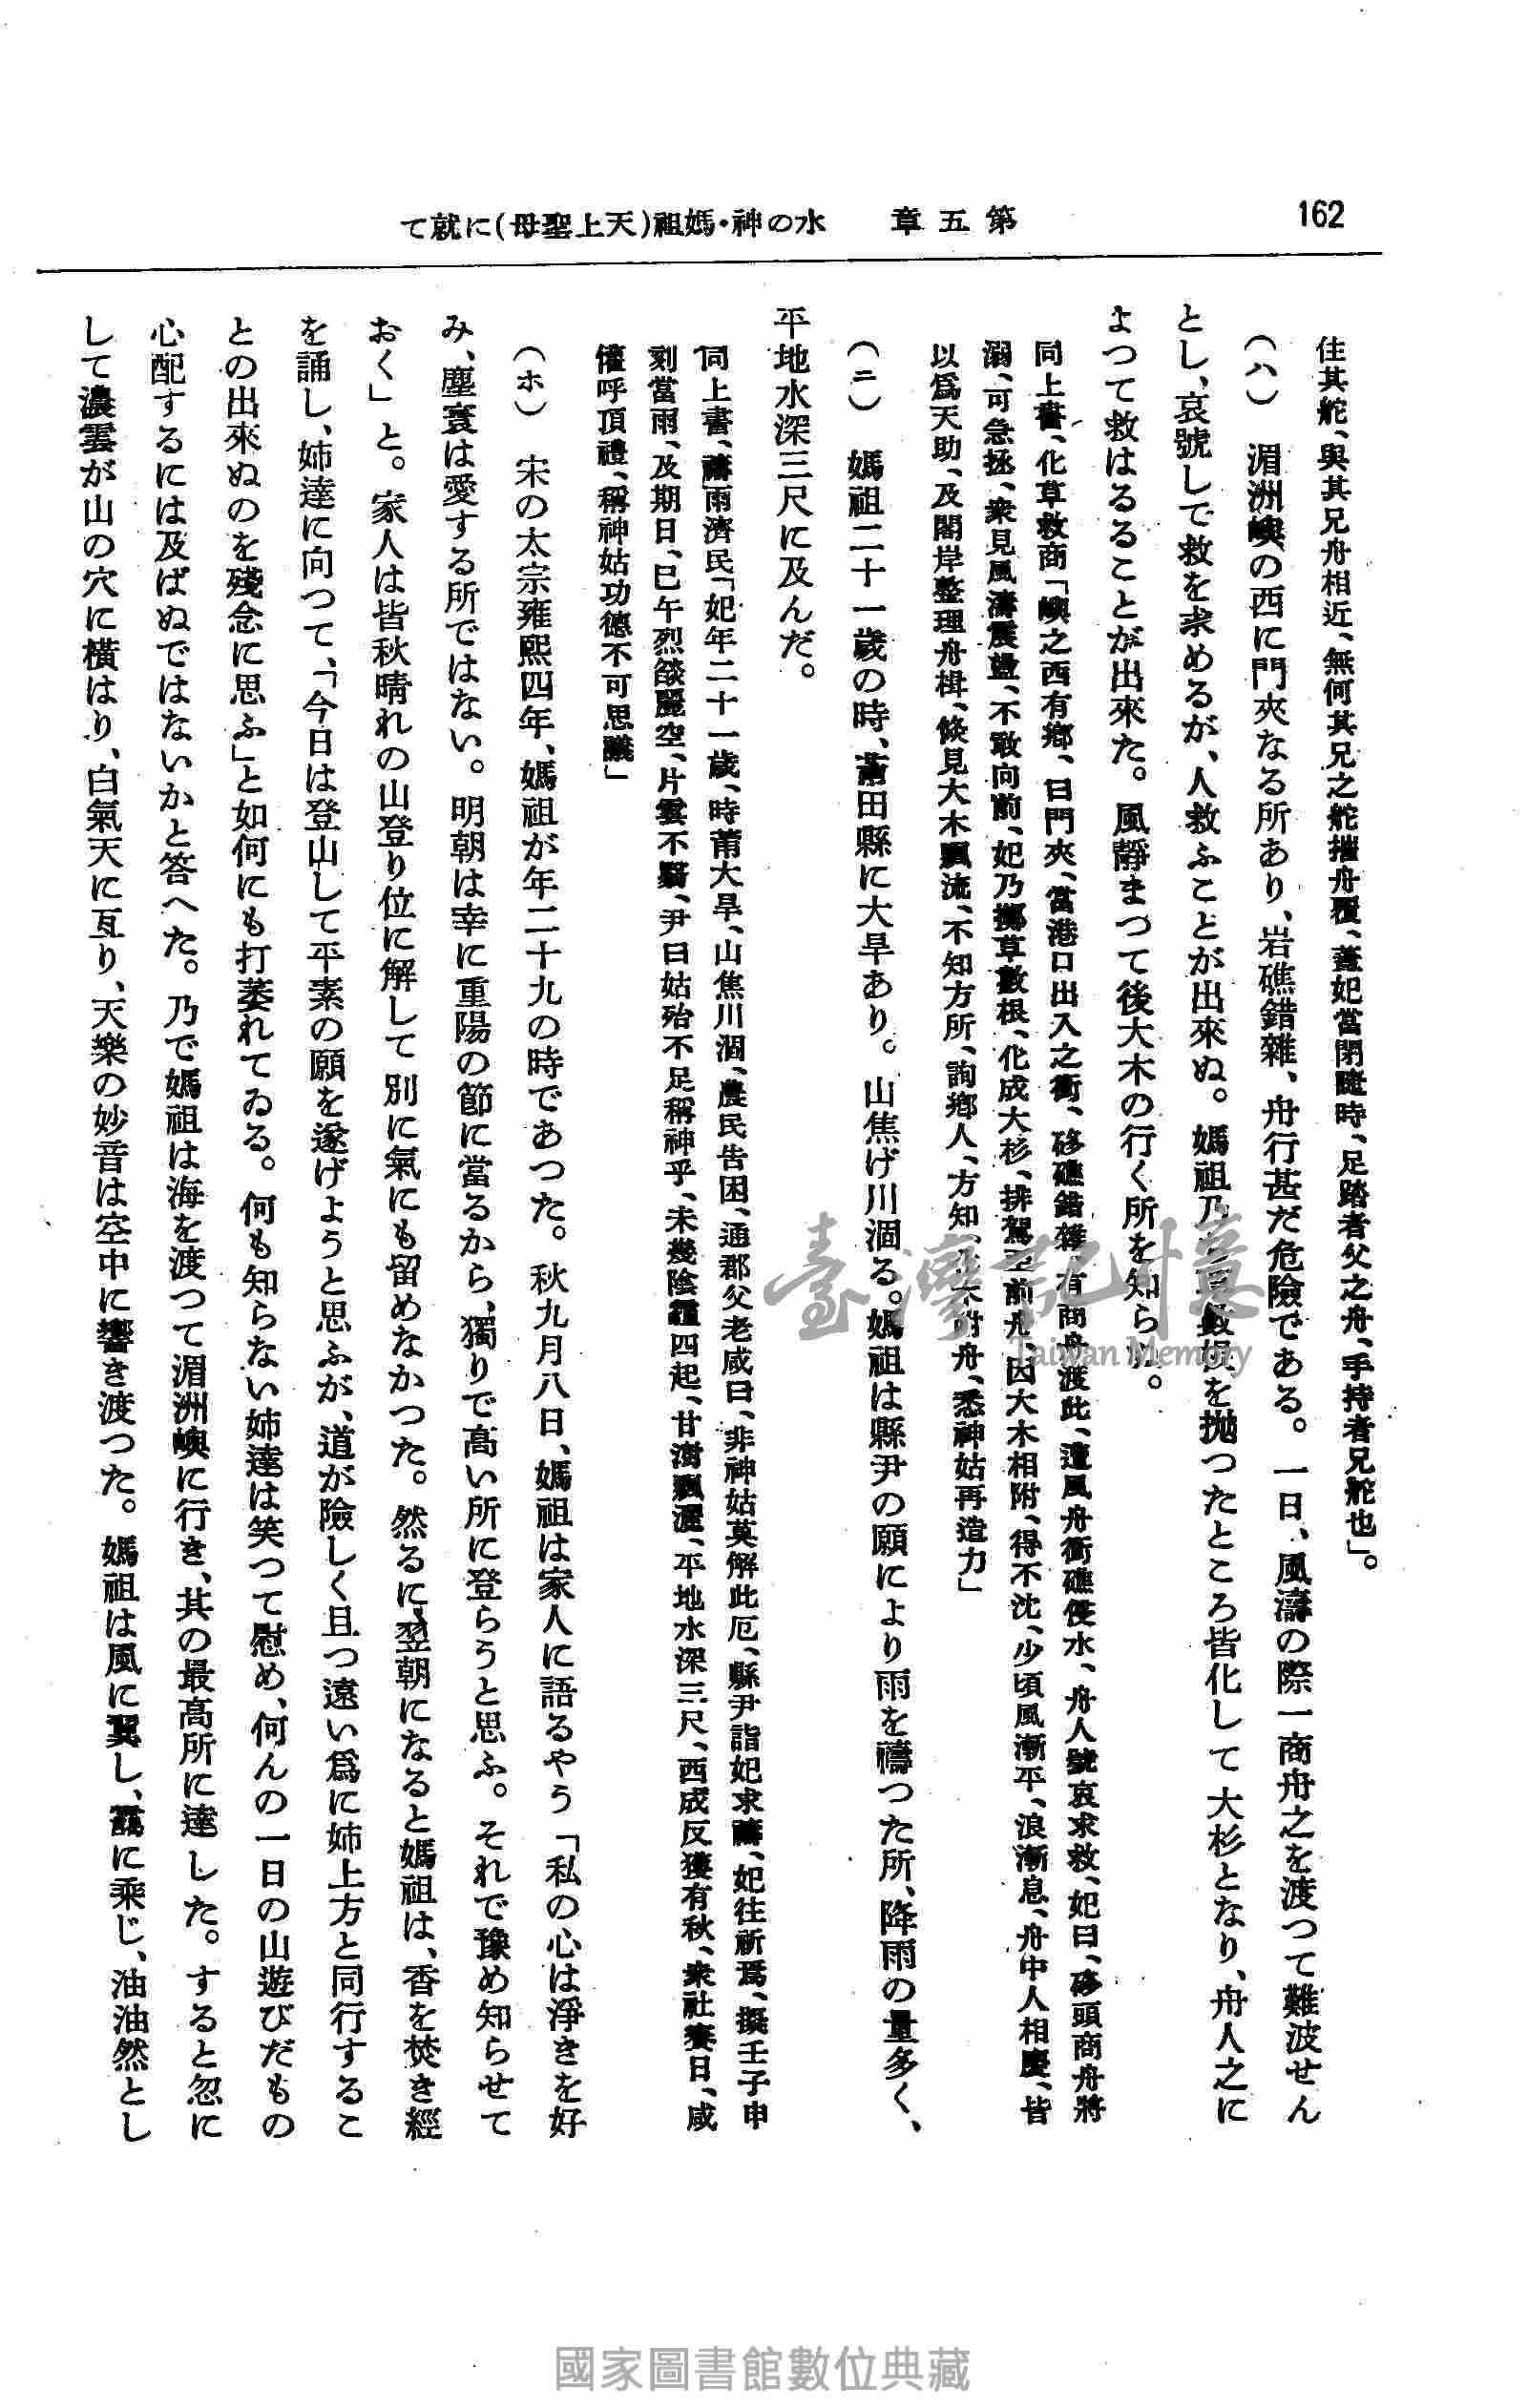 162
第五章　水の神・媽祖(天上聖母)に就て
住其舵、與其兄舟相近、無何其兄之舵摧舟覆、蓋妃當閉睫時、足踏者父之舟、手持者兄舵也」。
(ハ)　湄洲嶼の西に門夾なる所あり、岩礁錯雜、舟行甚だ危險である。一日、風濤の際一商舟之を渡つて難波せん
とし、哀號しで救を求めるが、人救ふことが出來ぬ。媽祖乃を抛つたところ皆化して大杉となり、舟人之に
よつて救はるることが出來た。風靜まつて後大木の行く所を知らぬ。
同上書、化草救商「嶼之西有鄉、曰門夾、當港口出入之衝、礁錯雜、有商舟渡此、遭風舟衝礁侵水、舟人號哀求救、妃曰、頭商舟將
溺、可急拯、衆見風濤震盪、不敢向前、妃乃擲草數根、化成大杉、排駕至前舟、因大木相附、得不沈、少頃風漸平、浪漸息、舟中人相慶、皆
以爲天助、及閣岸整理舟楫、倐見大木飄流、不知方所、詢鄉人、方知附舟、悉神姑再造力」
(ニ)　媽祖二十一歲の時、莆田縣に大旱あり。山焦げ川涸る。媽祖は縣尹の願により雨を禱つた所、降雨の量多く、
平地水深三尺に及んだ。
同上書、禱雨濟民「妃年二十一歲、時莆大旱、山焦川涸、農民告困、通郡父老咸曰、非神姑莫解此厄、縣尹詣妃求禱、妃往祈焉、擬壬子申
刻當雨、及期日、巳午烈燄麗空、片雲不翳、尹曰姑殆不足稱神乎、未幾陰霾四起、甘澍飄渥、平地水深三尺、西成反獲有秋、衆社賽日、咸
懽呼頂禮、稱神姑功德不可思議」
(ホ)　宋の太宗雍熙四年、媽祖が年二十九の時であつた。秋九月八日、媽祖は家人に語るやう「私の心は淨きを好
み、塵寰は愛する所ではない。明朝は幸に重陽の節に當るから、獨りで高い所に登らうと思ふ。それで豫め知らせて
おく」と。家人は皆秋晴れの山登り位に解して別に氣にも留めなかつた。然るに、翌朝になると媽祖は、香を焚き經
を誦し、姉達に向つて、「今日は登山して平素の願を遂げようと思ふが、道が險しく且つ遠い爲に姉上方と同行するこ
との出來ぬのを殘念に思ふ」と如何にも打萎れてゐる。何も知らない姉達は笑つて慰め、何んの一日の山遊びだもの
心配するには及ばぬではないかと答へた。乃で媽祖は海を渡つて湄洲嶼に行き、其の最高所に達した。すると忽に
して濃雲が山の穴に橫はり、白氣天に亙り、天樂の妙音は空中に響き渡つた。媽祖は風に翼し、靄に乘じ、油油然とし
臺灣記憶
Taiwan Memory
國家圖書館數位典藏